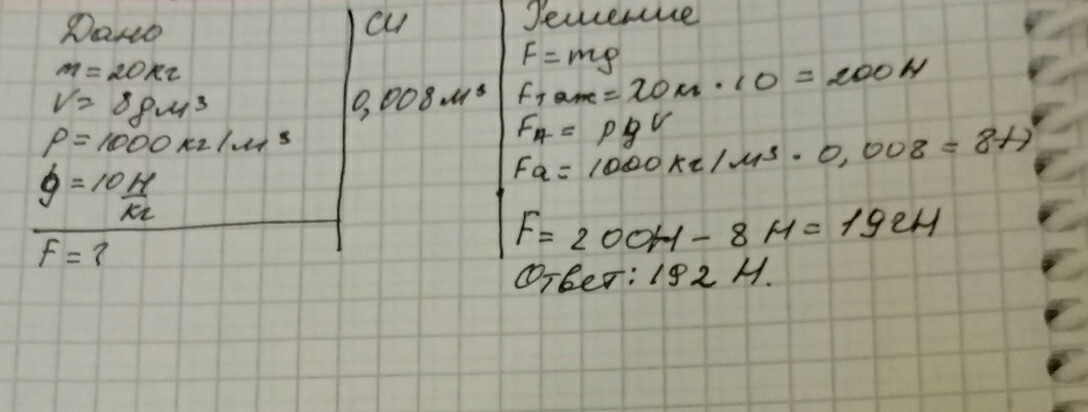 Дано
m = 20 кг
V = 8 дм³
ρ = 1000 кг/м³
g = 10 Н/кг
F = ?
СИ
0,008 м³
Решение
F = mg
Fтяж = 20 кг · 10 = 200 Н
FА = ρgV
Fa = 1000 кг/м³ · 0,008 = 8 Н
F = 200 Н - 8 Н = 192 Н
Ответ: 192 Н.